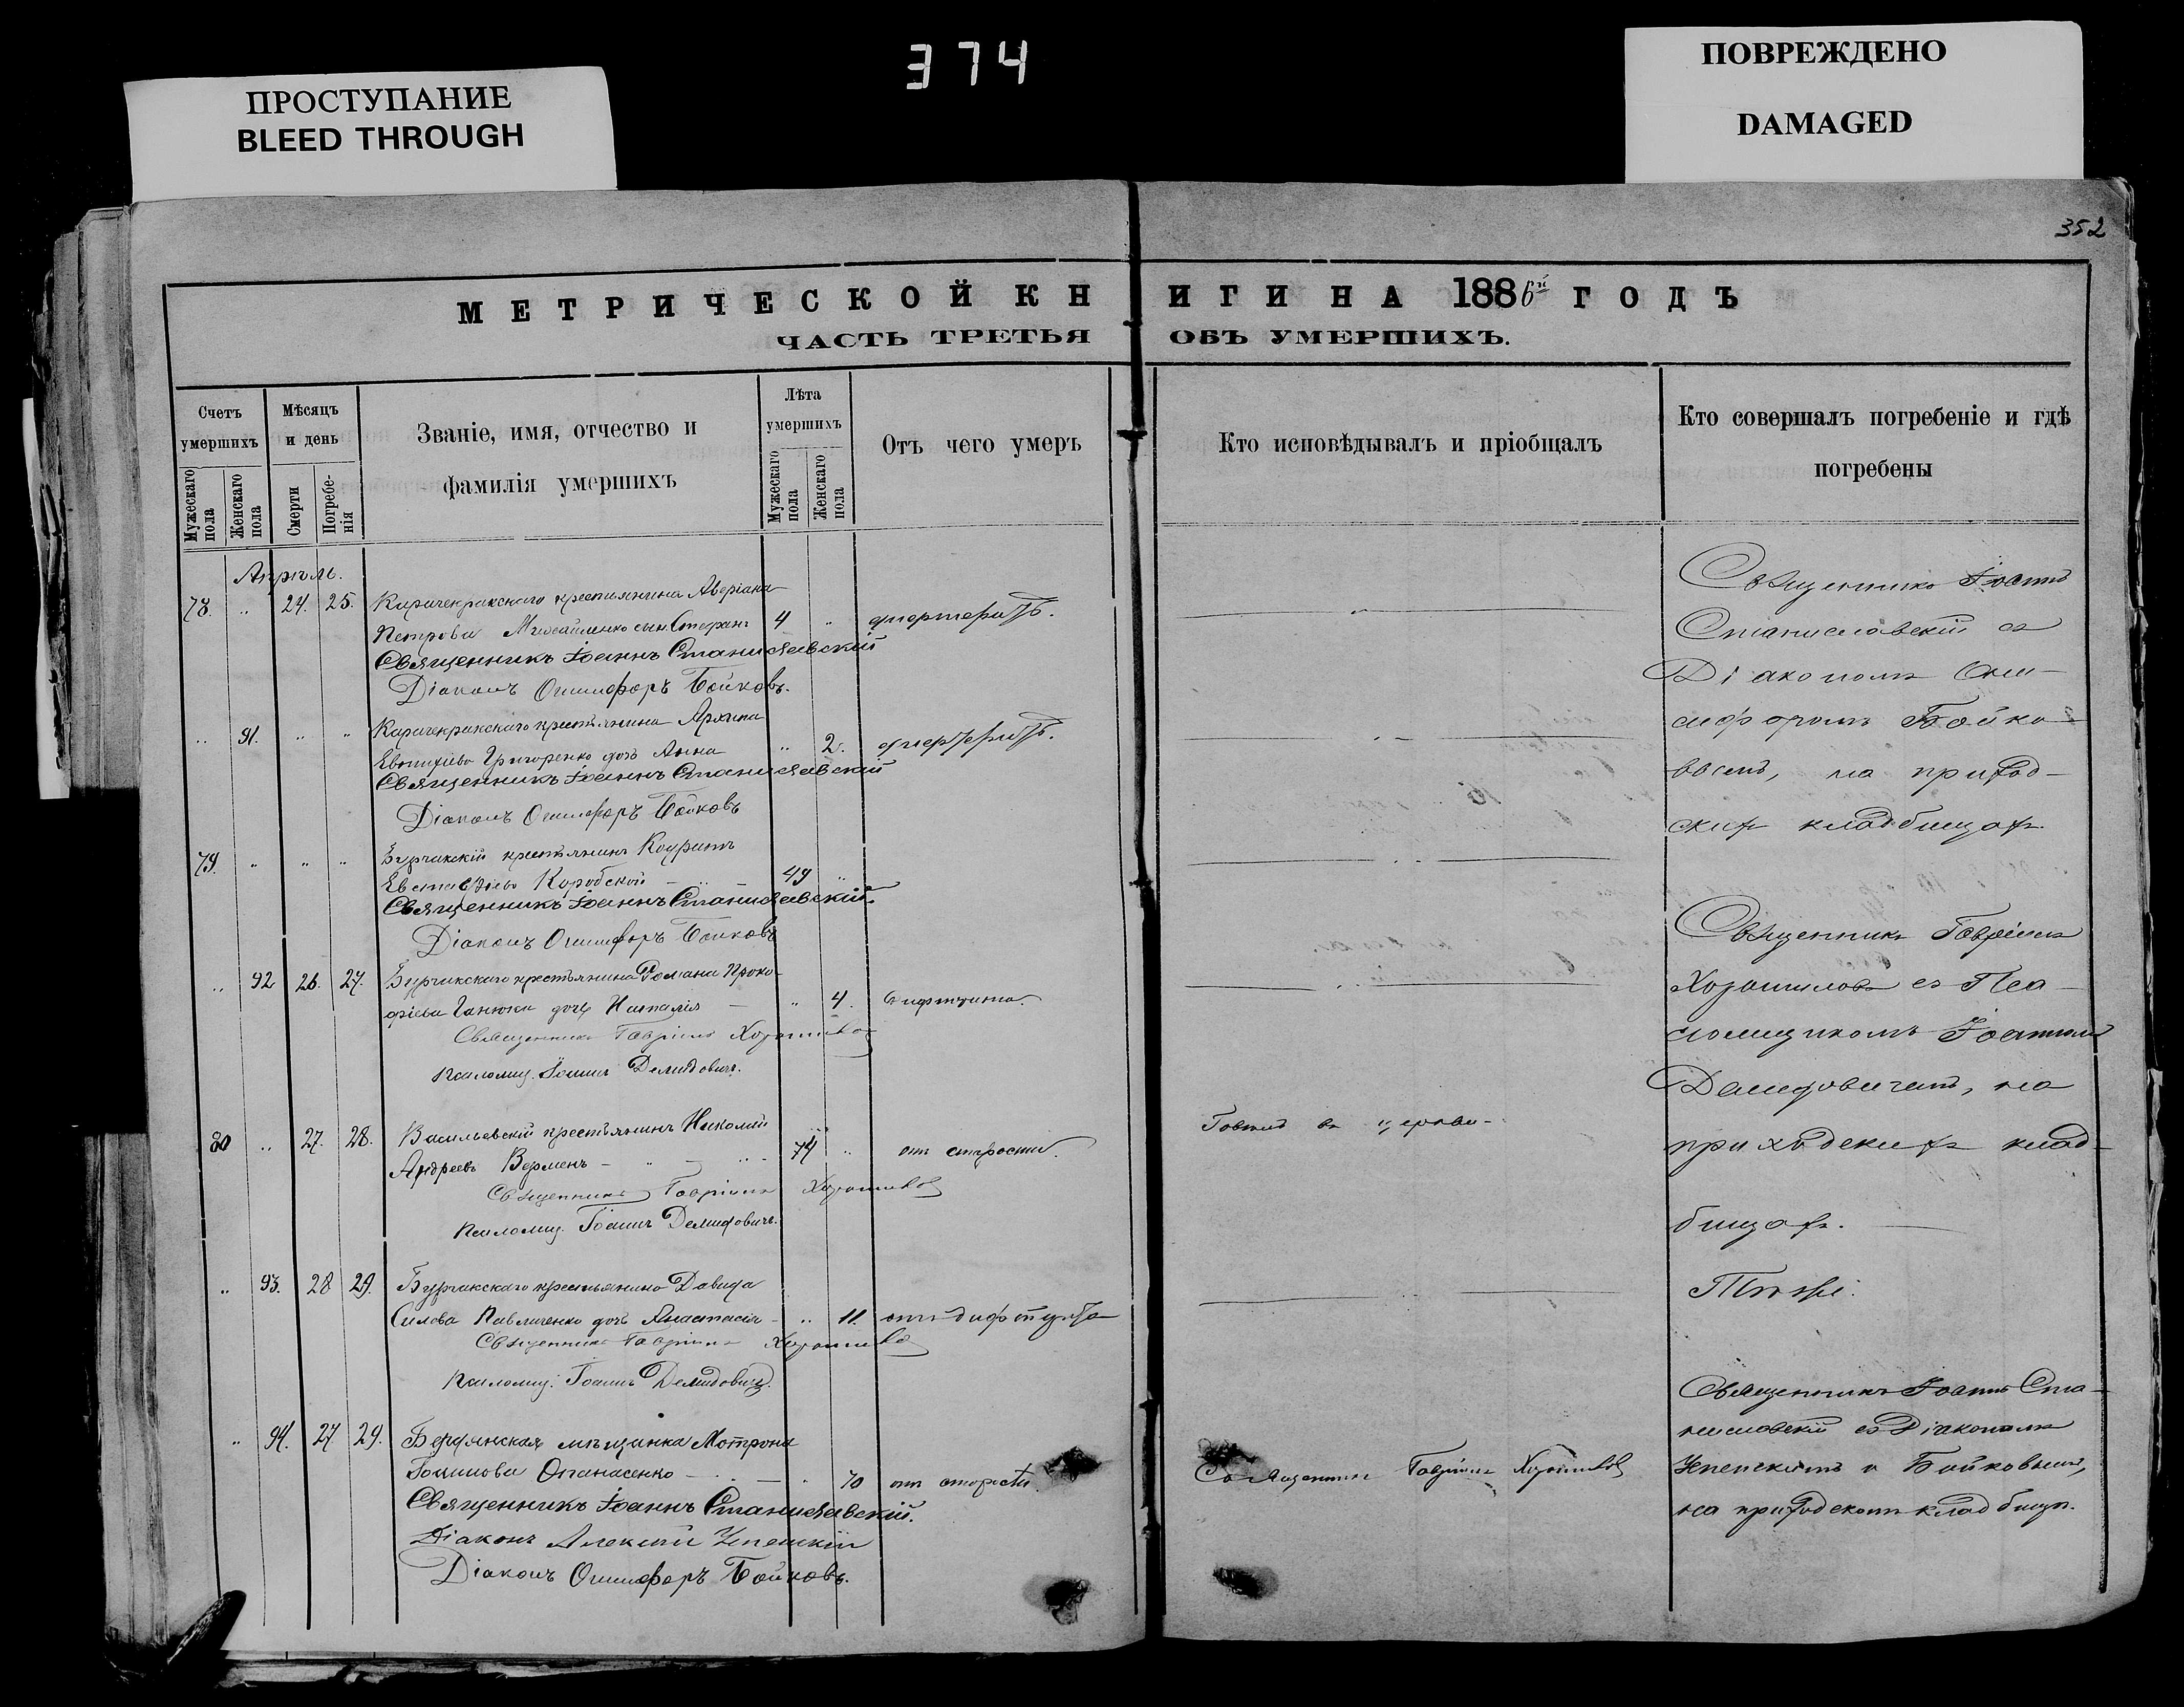 374
ПРОСТУПАНИЕ
BLEED THROUGH
ПОВРЕЖДЕНО
DAMAGED
352
МЕТРИЧЕСКОЙ КНИГИ НА 1886й ГОДЪ
ЧАСТЬ ТРЕТЬЯ ОБЪ УМЕРШИХЪ.
Счетъ умершихъ
Мужескаго пола
Женскаго пола
Мѣсяцъ и день
Смерти
Погребенія
Званіе, имя, отчество и
фамилія умершихъ
Лѣта умершихъ
Мужескаго пола
Женскаго пола
Отъ чего умеръ
Кто исповѣдывалъ и пріобщалъ
Кто совершалъ погребеніе и гдѣ
погребены
Апрѣль.
78. „ 24. 25. крестьянина Аверіана
Петрова сынъ Стефанъ 4 „
Священникъ Іоаннъ Станиславскій
Діаконъ Онисифоръ Бойковъ.
„ 91. „ „ крестьянина Архипа
Григоренко дочь Анна „ 2.
Священникъ Іоаннъ Станиславскій
Діаконъ Онисифоръ Бойковъ
79. „ „ „ крестьянинъ
Коробской 49 „
Священникъ Іоаннъ Станиславскій
Діаконъ Онисифоръ Бойковъ
„ 92 26. 27. Бурчакскаго крестьянина Романа Проко-
фіева дочь Наталія — „ 4.
Священникъ Гавріилъ Хорошиловъ
Псаломщ. Іоаннъ Демидовичъ.
80 „ 27. 28. Васильевскій крестьянинъ Николай
Андреевъ Верменъ 74 „ отъ старости.
Священникъ Гавріилъ Хорошиловъ
Псаломщ. Іоаннъ Демидовичъ.
„ 93. 28 29. Бурчакскаго крестьянина Давида
Силова Павличенко дочь Анастасія „ 11. отъ дифтерита
Священникъ Гавріилъ Хорошиловъ
Псаломщ. Іоаннъ Демидовичъ.
„ 94. 27 29. Бердянская мѣщанка Мотрона
Опанасенко 70 отъ старости.
Священникъ Іоаннъ Станиславскій.
Діаконъ Алексій Успенскій
Діаконъ Онисифоръ Бойковъ.
въ церкви
Священникъ Гавріилъ Хорошиловъ
Священникъ Іоаннъ
Станиславскій съ
Діакономъ Они-
сифоромъ Бойко-
вымъ, на приход-
скихъ кладбищахъ
Священникъ Гавріилъ
Хорошиловъ съ Пса-
ломщикомъ Іоанномъ
Демидовичемъ, на
приходскихъ клад-
бищахъ.
Тѣже.
Священникъ Іоаннъ Ста-
ниславскій съ Діаконами
Успенскимъ и Бойковымъ,
на приходскомъ кладбищѣ.